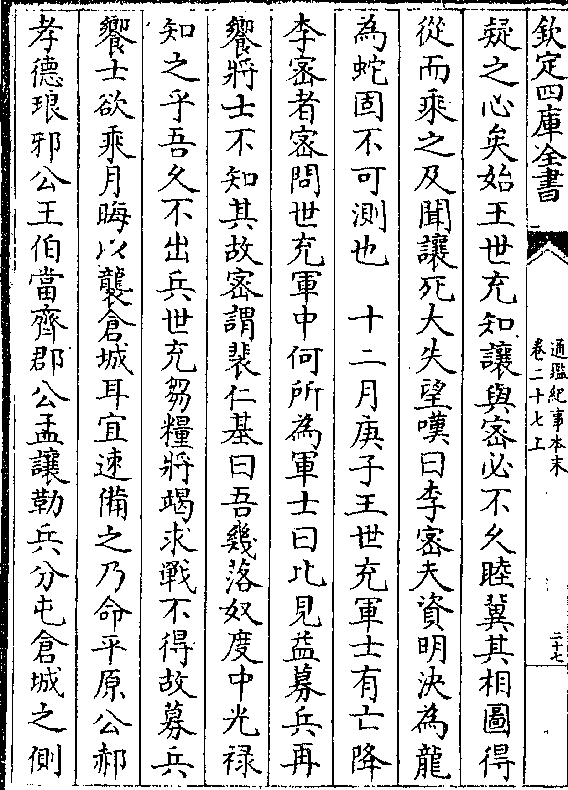 欽定四庫全書
通鑑紀事本末
卷二十七上
二十七
疑之心矣始王世充知讓與密必不久睦冀其相圖得
從而乘之及聞讓死大失望嘆曰李密天資明決為龍
為蛇固不可測也　十二月庚子王世充軍士有亡降
李密者密問世充軍中何所為軍士曰比見益募兵再
饗將士不知其故密謂裴仁基曰吾幾落奴度中光祿
知之乎吾久不出兵世充芻糧將竭求戰不得故募兵
饗士欲乘月晦以襲倉城耳宜速備之乃命平原公郝
孝德琅邪公王伯當齊郡公孟讓勒兵分屯倉城之側